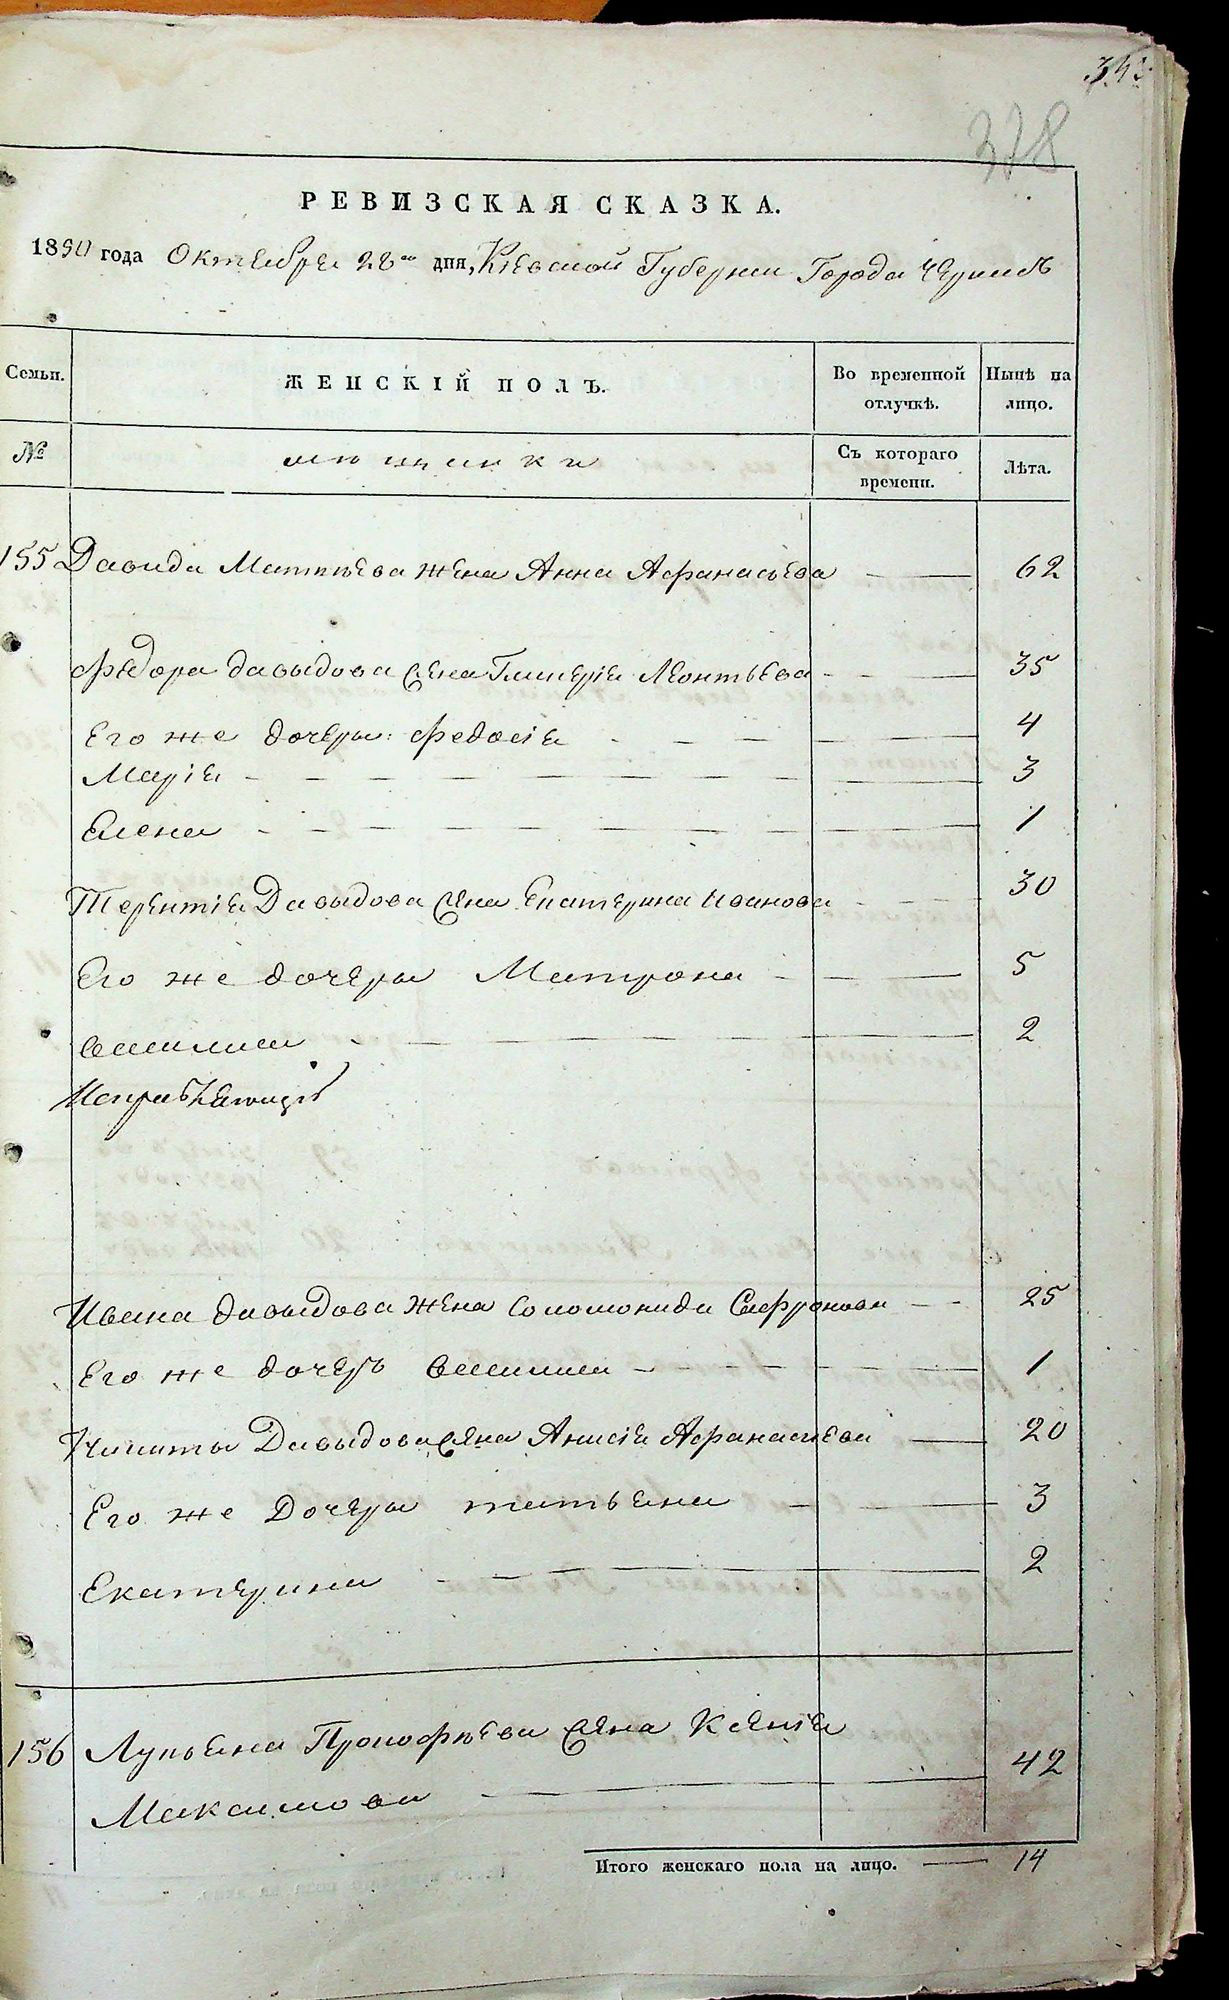 378
РЕВИЗСКАЯ СКАЗКА.
1850 года Октября 28го дня, Киевской Губернии Города Черкасъ
Семьи. ЖЕНСКІЙ ПОЛЪ. Во временной отлучкѣ. Нынѣ на лицо.
№ мѣщанки Съ котораго времени. Лѣта.
155 Давида Матвѣева жена Анна Афанасьева — 62
Фѣдора Давыдова жена Гликерія Леонтьева — 35
Его же дочери: Федосія — 4
Марія — 3
Елена — 1
Терентія Давыдова жена Екатерина Иванова — 30
Его же дочери Матрона — 5
Василиса — 2
Ивана Давыдова жена Соломонида Сафронова — 25
Его же дочерь Василиса — 1
Никиты Давыдова жена Анисія Афанасьева — 20
Его же Дочери татьяна — 3
Екатерина — 2
156 Лукьяна Прокофьева жена Ксенія
Максимова — 42
Итого женскаго пола на лицо. — 14